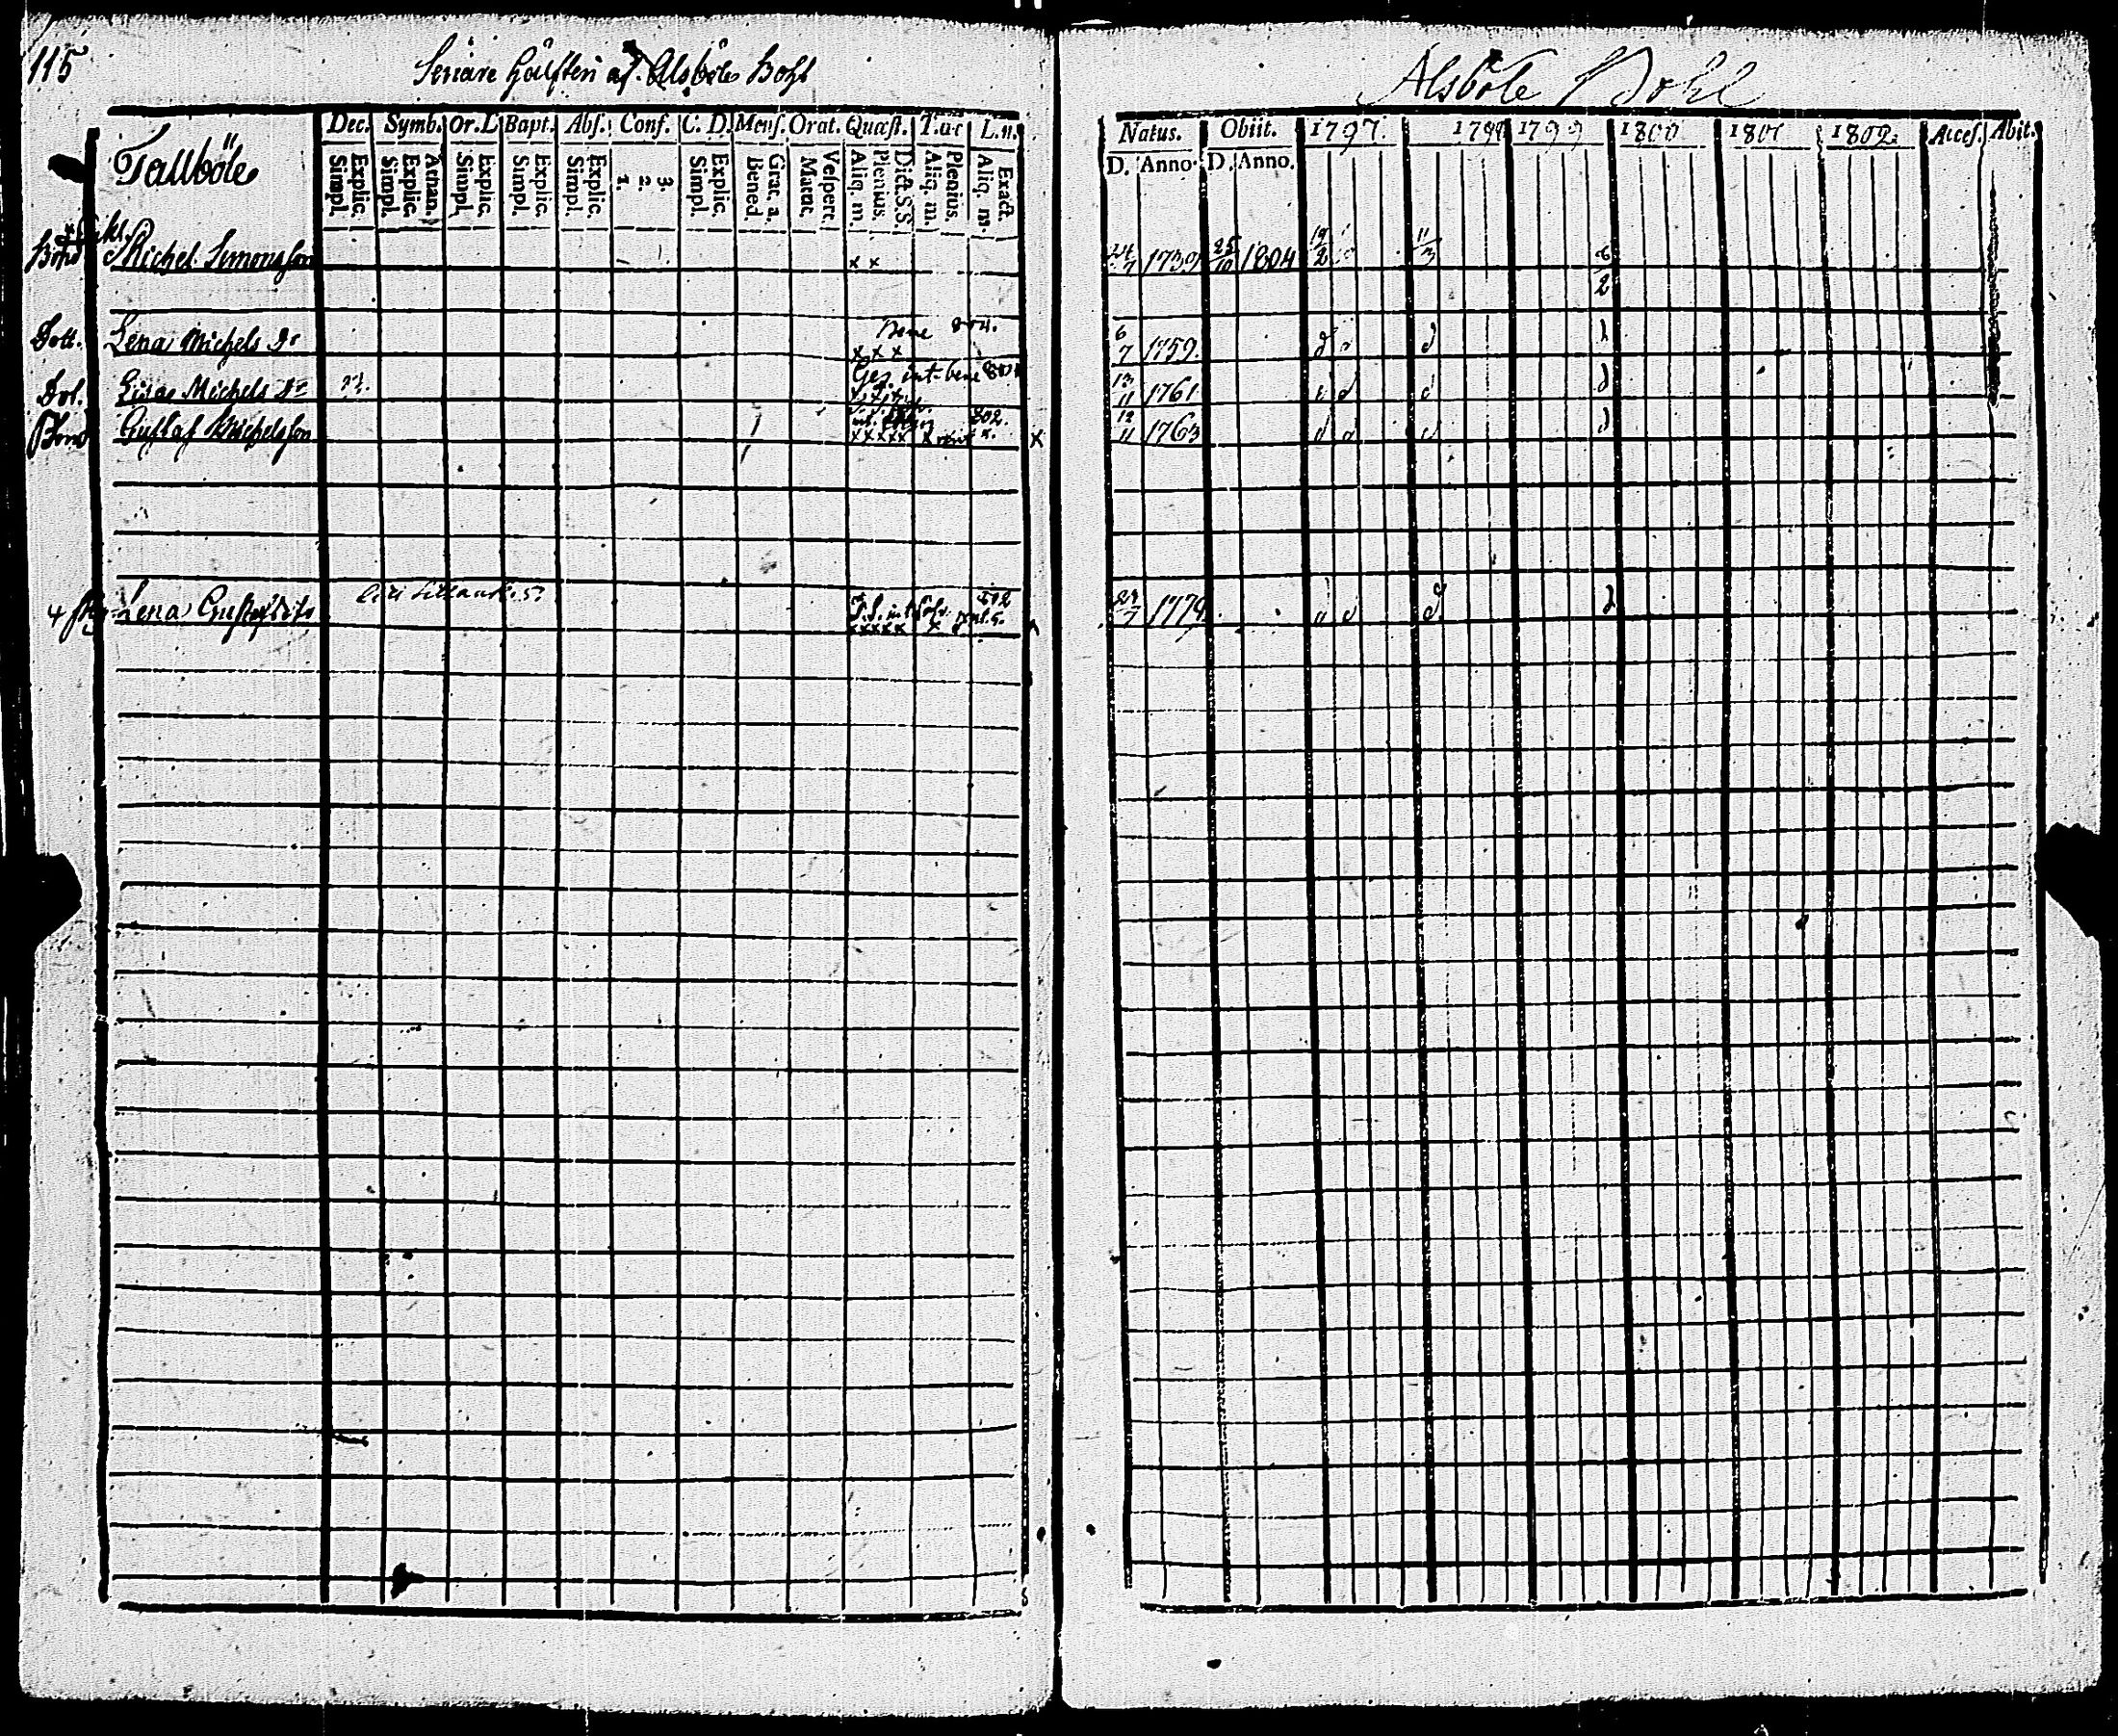 115
Senare hälften af Alsböle Bohl
Alsböle Bohl
Dec. Symb. Or. D Bapt. Abs. Conf. C. D. Mens. Orat. Quæst. T. æc L. n.
Natus. Obiit. 1797 1798 1799 1800 1801 1802 Acces. Abit.
Tallböle
Explic. Simpl. Athan. Explic. Simpl. Explic. Simpl. Explic. Simpl. Explic. Simpl. 3. 2. 1. Explic. Simpl. Grat. a. Bened. Vespert. Matut. Dict. S.S. Plenius. Aliq. m. Plenius. Aliq. m. Exact. Aliq. m.
D. Anno D. Anno.
Bond Michel Simonsson x x 24/7 1739 25/10 1804 19/2 11/3 6/2
Dott. Lena Michels Dr Bene 804. x x x 6/7 1759.
Dot. Lisa Michels Dr int bene 801 13/11 1761
Bond Gustaf Michelsson 802. x x x x x x x 12/11 1763
Lena Gustafsdtr int x x x x x x 29/7 1779